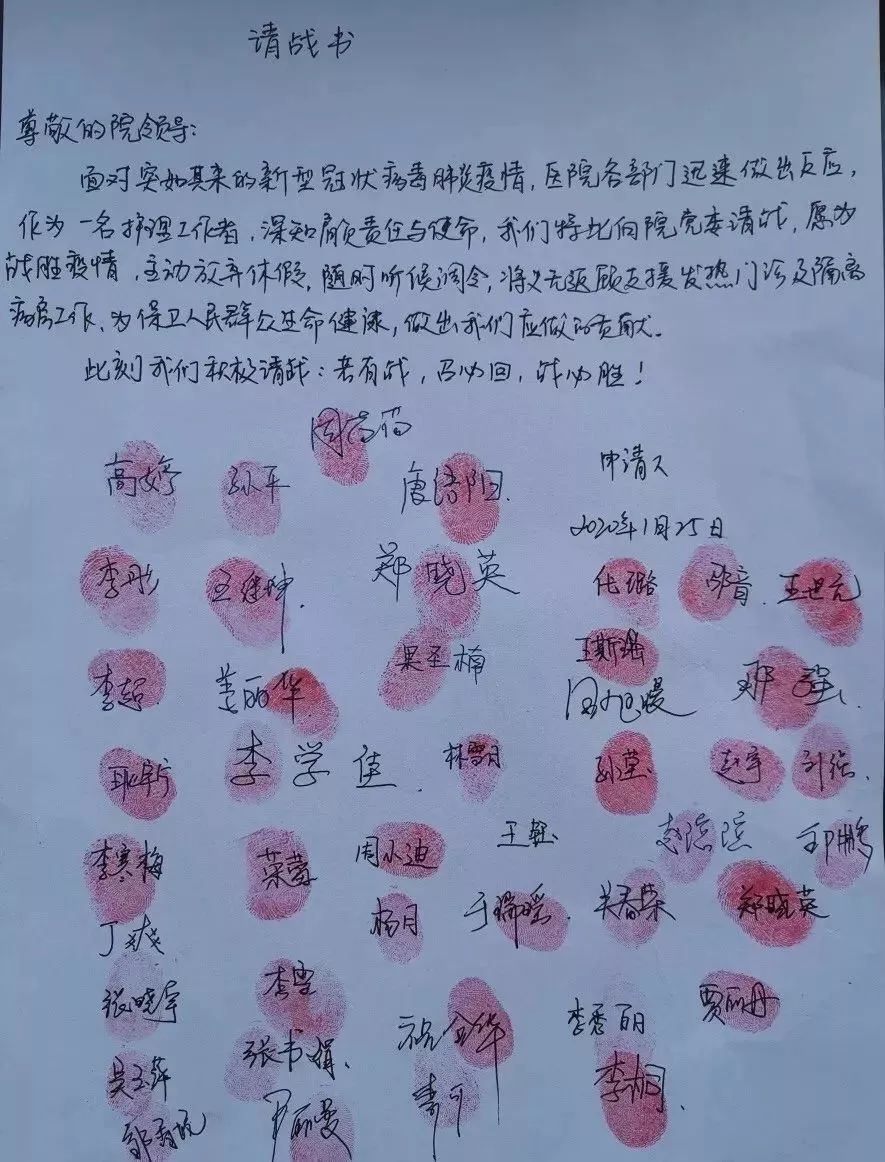 请战书
尊敬的院领导:
面对突如其来的新型冠状病毒肺炎疫情,医院各部门迅速做出反应,
作为一名护理工作者,深知肩负责任与使命,我们特此向院党委请战,愿为
战胜疫情,主动放弃休假,随时听候调令,将义无返顾支援发热门诊及隔离
病房工作、为保卫人民群众生命健康,做出我们应做的贡献。
此刻我们积极请战:若有战,召必回,战必胜!
高婷 孙平 唐语阳
申请人
2020年1月25日
李彤 王继坤 郑晓英 化璐 王世元
李超 姜丽华 吴圣楠 王斯瑶
李学佳 林雪月 孙莹 赵宇
李寒梅 荣蓉 周小迪 王钰 赵滨滨
丁爽 杨月 于瑞瑶 关春荣 郑晓英
张晓宇 李雪 李秀丽 贾丽丹
吴玉萍 张书娟